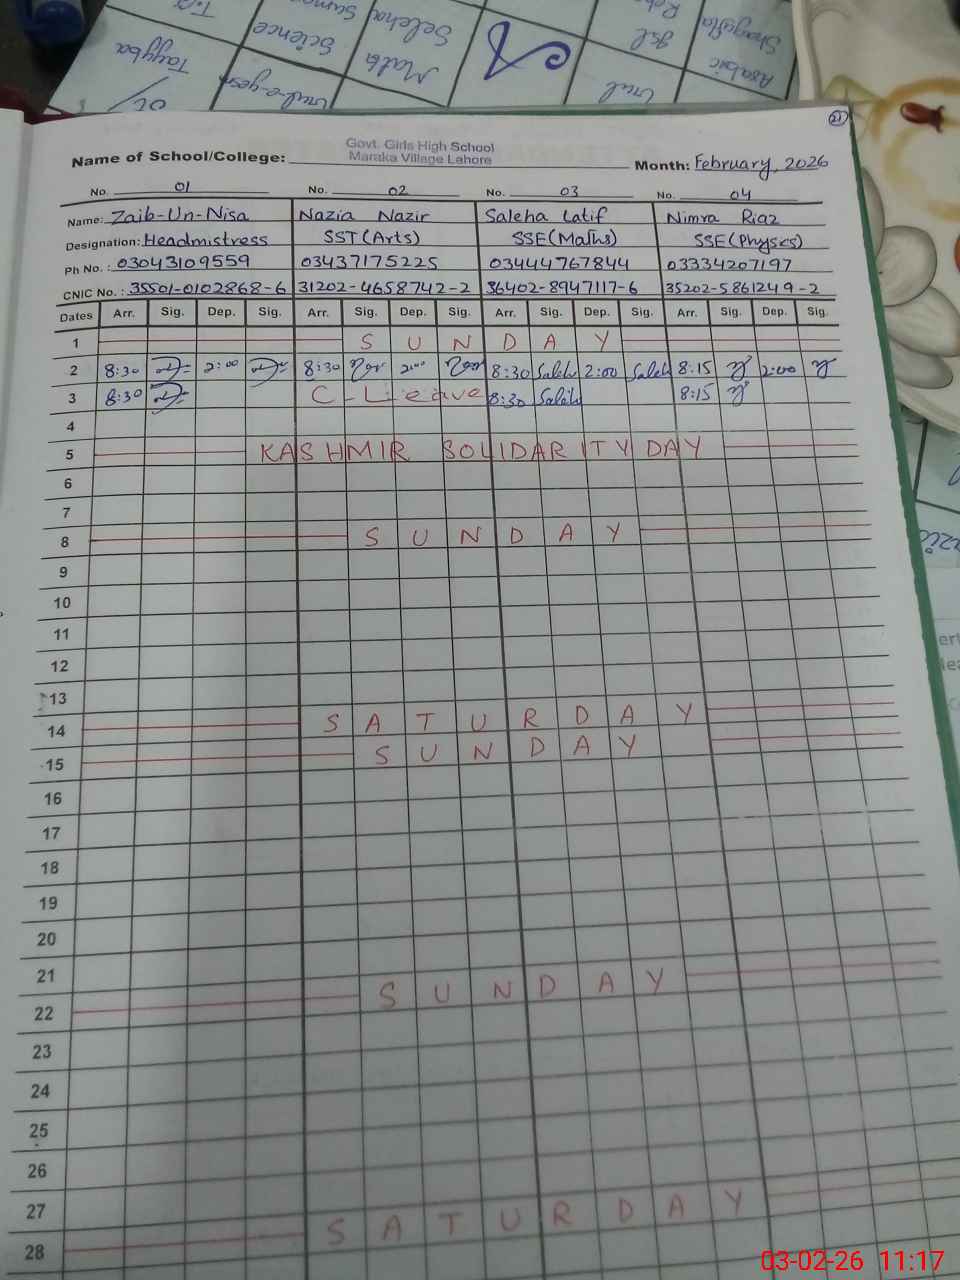 Tayyba
Science
Math
Saleha
Urdu-e-
Arabic
Shagufta
21
Govt. Girls High School
Name of School/College: Maraka Village Lahore Month: February, 2026
No. 01 No. 02 No. 03 No. 04
Name: Zaib-Un-Nisa Nazia Nazir Saleha Latif Nimra Riaz
Designation: Headmistress SST(Arts) SSE(Maths) SSE(Physics)
Ph No.: 03043109559 03437175225 03444767844 03334207197
CNIC No.: 35501-0102868-6 31202-4658742-2 36402-8947117-6 35202-5861249-2
Dates Arr. Sig. Dep. Sig. Arr. Sig. Dep. Sig. Arr. Sig. Dep. Sig. Arr. Sig. Dep. Sig.
1 SUNDAY
2 8:30 2:00 8:30 2:00 8:30 Saleh 2:00 Saleh 8:15 2:00
3 8:30 C-Lieave 8:30 Saleh 8:15
4
5 KASHMIR SOLIDARITY DAY
6
7
8 SUNDAY
9
10
11
12
13
14 SATURDAY
15 SUNDAY
16
17
18
19
20
21
22 SUNDAY
23
24
25
26
27
28 SATURDAY
03-02-26 11:17